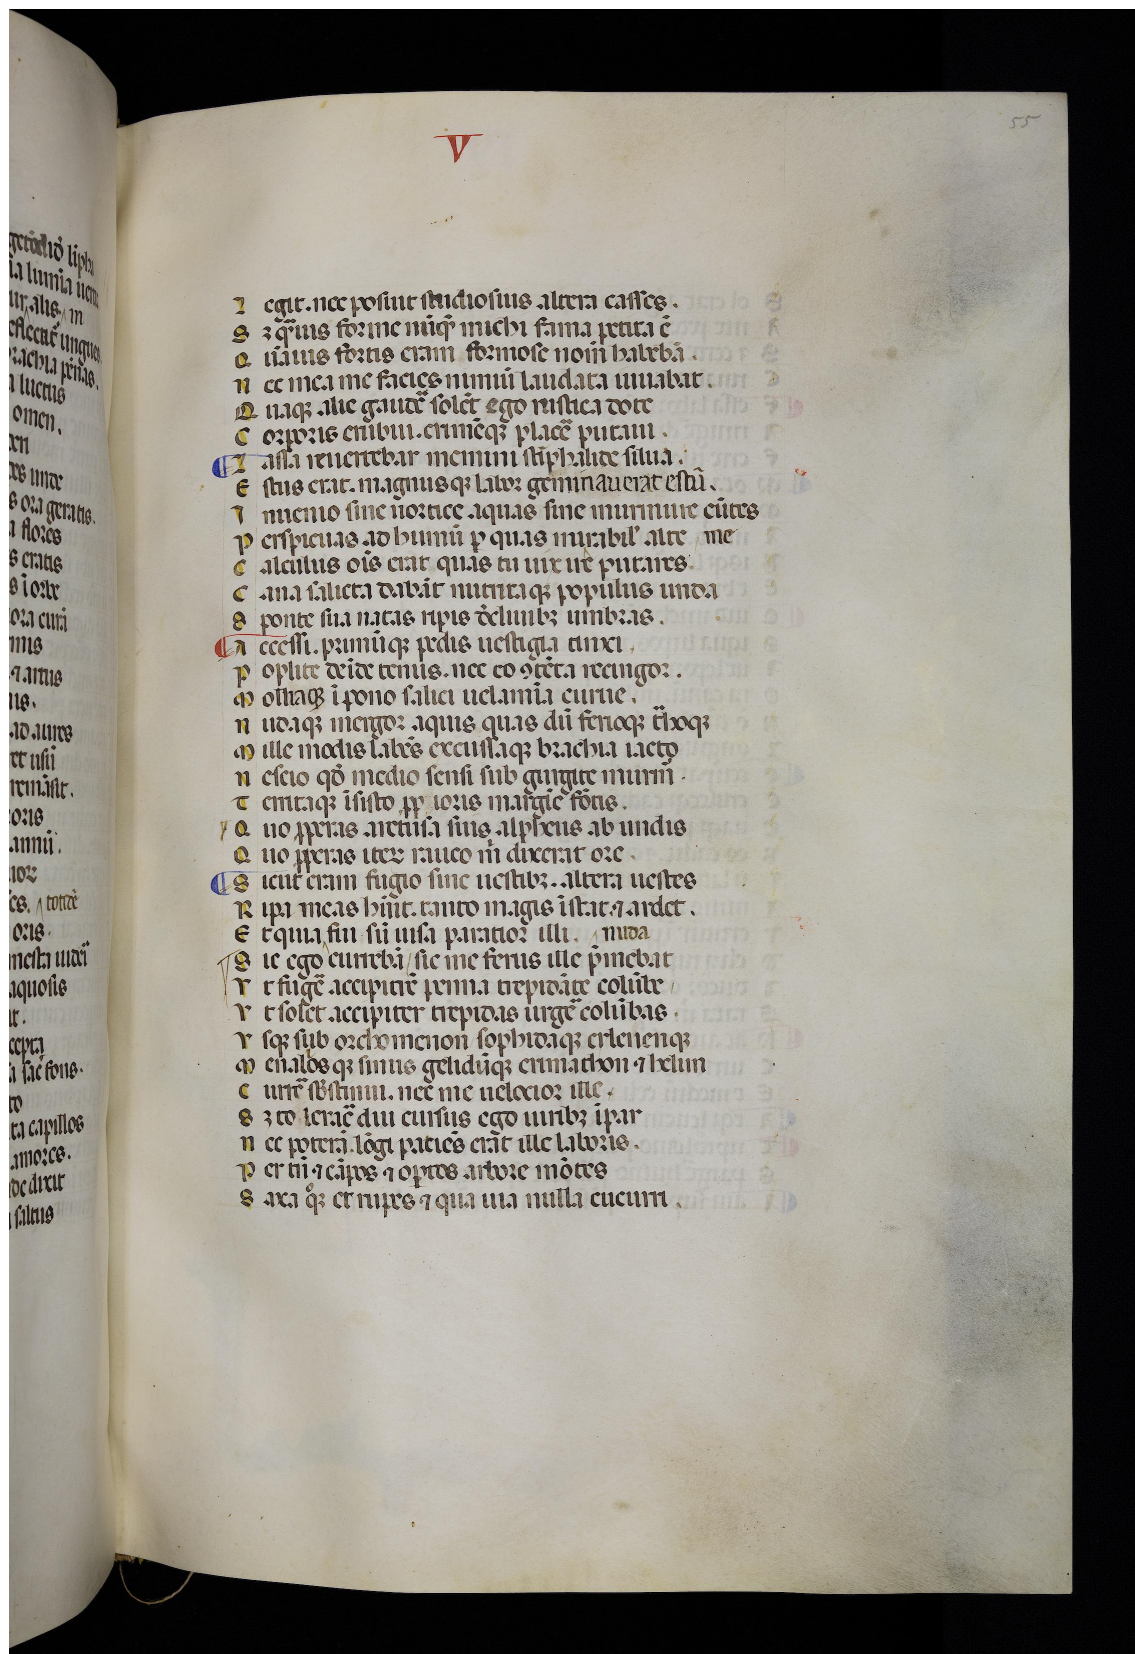 V
55
L egit. nec posuit studiosius altera casses.
S ꝫ q̃uis forme nũq̃ michi fama petita ẽ
Q uãuis fortis eram formose nom̃ habebã.
N ec mea me facies nimiũ laudata iuuabat.
Q uaqꝫ alie gaudẽ solẽt ego rustica dote
C orporis erubui. crimẽqꝫ placẽ putaui.
L assa reuertebar memini stĩphalide silua.
E stus erat. magnusqꝫ labor geminauerat estũ.
I nuenio sine uortice aquas sine murmure eũtes
P erspicuas ad humũ ꝑ quas nũabil' alte me
C alculus oĩs erat quas tu uix ire putares.
C ana salicta dabãt nutritaqꝫ populus unda
S ponte sua natas ripis decliuibꝫ umbras.
A ccessi. primũqꝫ pedis uestigia tinxi.
P oplite deĩde tenus. nec eo ꝯtẽta recingor.
M olliaqꝫ ĩpono salici uelamĩa curue.
N udaqꝫ mergor aquis quas dũ ferioqꝫ t̃hoqꝫ
M ille modis labẽs excussaqꝫ brachia iacto
N escio qđ medio sensi sub gurgite murm̃.
T erritaqꝫ ĩsisto ꝓpioris margĩe fõtis.
Q uo ꝓperas aretusa suis alpheus ab undis
Q uo ꝓperas iteꝝ rauco m̃ dixerat ore.
S icut eram fugio sine uestibꝫ. altera uestes
R ipa meas hũit. tanto magis ĩstat. ⁊ ardet.
E t quia fui sũ uisa paratior illi. nuda
S ic ego currebã sic me ferus ille p̃mebat
V t fugẽ accipitrẽ penna trepidãte colũbe
V t solet accipiter trepidas urgẽ colũbas.
V sqꝫ sub orchomenon sophidaqꝫ crlenenqꝫ
M enalosqꝫ sinus gelidũqꝫ erimathon ⁊ helim
C urrẽ sb̃stinui. nec me uelocior ille.
S ꝫ tolerãe diu cursus ego uiribꝫ ĩpar
N ec poterã. lõgi paciẽs erãt ille laboris.
P er tñ ⁊ cãpos ⁊ opẽtos arbore mõtes
S axa q̊qꝫ et rupes ⁊ qua uia nulla cucurri.